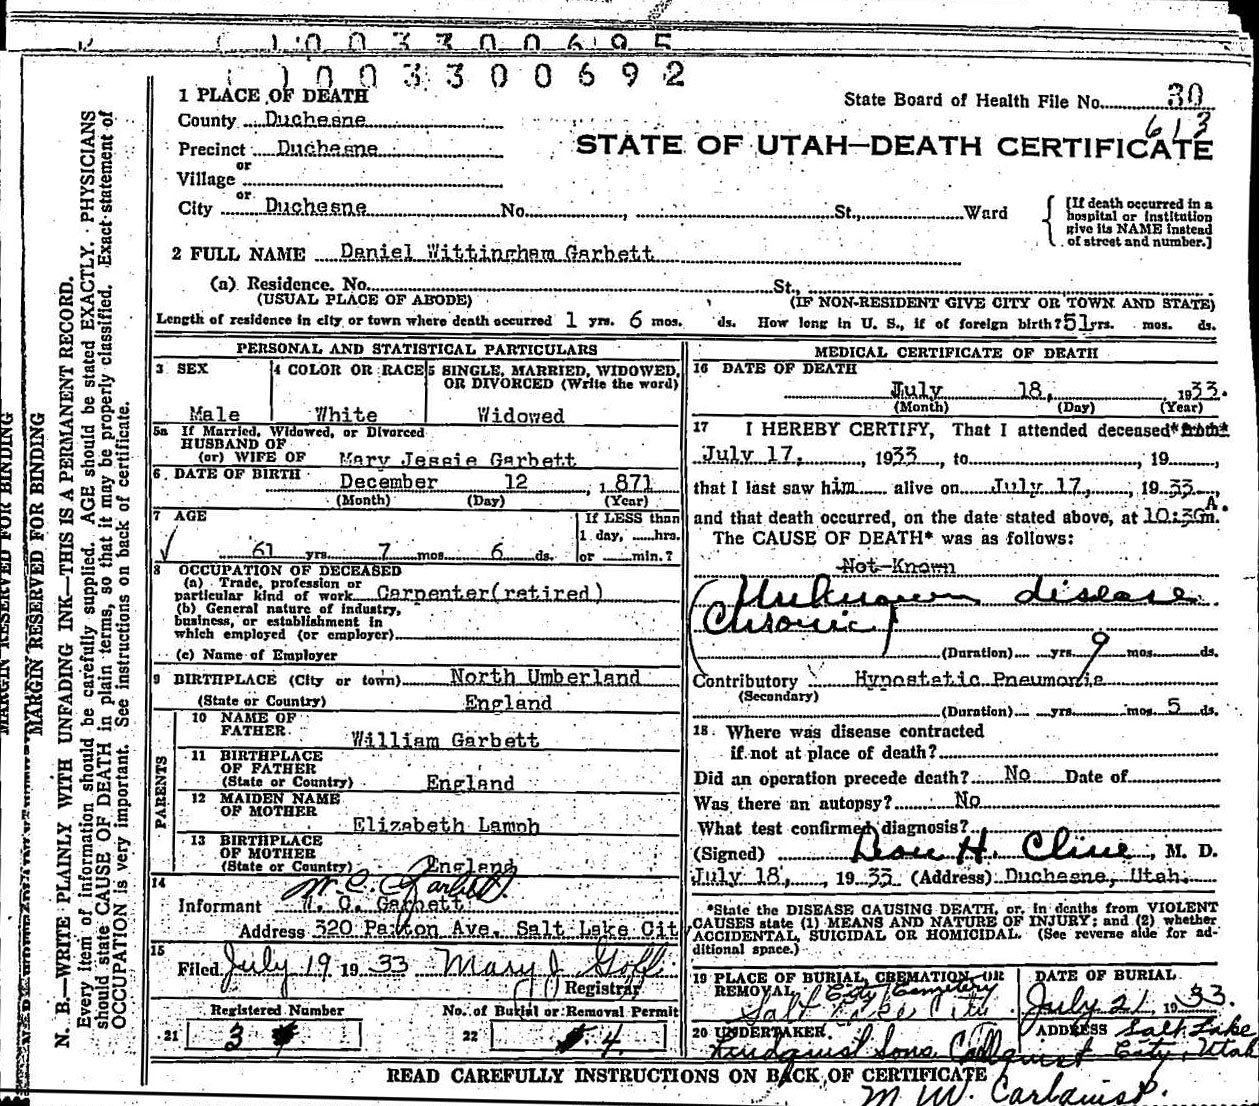 1 0 0 3 3 0 0 6 9 5
1 0 0 3 3 0 0 6 9 2
MARGIN RESERVED FOR BINDING
MARGIN RESERVED FOR BINDING
N. B.—WRITE PLAINLY WITH UNFADING INK—THIS IS A PERMANENT RECORD.
Every item of information should be carefully supplied. AGE should be stated EXACTLY. PHYSICIANS
should state CAUSE OF DEATH in plain terms, so that it may be properly classified. Exact statement of
OCCUPATION is very important. See instructions on back of certificate.
1 PLACE OF DEATH
State Board of Health File No. 30
613
County Duchesne
STATE OF UTAH—DEATH CERTIFICATE
Precinct Duchesne
or
Village
or
City Duchesne No. , St., Ward
[If death occurred in a
hospital or institution
give its NAME instead
of street and number.]
2 FULL NAME Daniel Wittingham Garbett
(a) Residence. No. St.,
(USUAL PLACE OF ABODE) (IF NON-RESIDENT GIVE CITY OR TOWN AND STATE)
Length of residence in city or town where death occurred 1 yrs. 6 mos. ds. How long in U. S., if of foreign birth? 51 yrs. mos. ds.
PERSONAL AND STATISTICAL PARTICULARS
3 SEX
Male
4 COLOR OR RACE
White
5 SINGLE, MARRIED, WIDOWED,
OR DIVORCED (Write the word)
Widowed
5a If Married, Widowed, or Divorced
HUSBAND OF
(or) WIFE OF Mary Jessie Garbett
6 DATE OF BIRTH
December 12, 1871
(Month) (Day) (Year)
7 AGE
61 yrs. 7 mos. 6 ds.
If LESS than
1 day, hrs.
or min.?
8 OCCUPATION OF DECEASED
(a) Trade, profession or
particular kind of work Carpenter(retired)
(b) General nature of industry,
business, or establishment in
which employed (or employer)
(c) Name of Employer
9 BIRTHPLACE (City or town) North Umberland
(State or Country) England
PARENTS
10 NAME OF
FATHER William Garbett
11 BIRTHPLACE
OF FATHER
(State or Country) England
12 MAIDEN NAME
OF MOTHER
Elizabeth Lamph
13 BIRTHPLACE
OF MOTHER
(State or Country) England
14
W. C. Garbett
Informant W. C. Garbett
Address 320 Paxton Ave. Salt Lake Cit
15
Filed July 19 1933 Mary J. Goff
Registrar
Registered Number
21 3
No. of Burial or Removal Permit
22 4
MEDICAL CERTIFICATE OF DEATH
16 DATE OF DEATH
July 18, 1933.
(Month) (Day) (Year)
17 I HEREBY CERTIFY, That I attended deceased
July 17, , 1933, to , 19 ,
that I last saw him alive on July 17, , 1933,
and that death occurred, on the date stated above, at 10:30 A.m.
The CAUSE OF DEATH* was as follows:
Not Known
Unknown disease
Chronic
(Duration) yrs. 9 mos. ds.
Contributory Hypostatic Pneumonia
(Secondary)
(Duration) yrs. mos. 5 ds.
18 Where was disease contracted
if not at place of death?
Did an operation precede death? No Date of
Was there an autopsy? No
What test confirmed diagnosis?
(Signed) H. Cline, M. D.
July 18, , 1933 (Address) Duchesne, Utah.
*State the DISEASE CAUSING DEATH, or, in deaths from VIOLENT
CAUSES state (1) MEANS AND NATURE OF INJURY; and (2) whether
ACCIDENTAL, SUICIDAL OR HOMICIDAL. (See reverse side for ad-
ditional space.)
19 PLACE OF BURIAL, CREMATION, OR
REMOVAL City Cemetery
Salt Lake City
DATE OF BURIAL
July 21 1933.
20 UNDERTAKER
Lindquist Sons Carlquist
ADDRESS Salt Lake
City, Utah
READ CAREFULLY INSTRUCTIONS ON BACK OF CERTIFICATE
M. W. Carlquist.